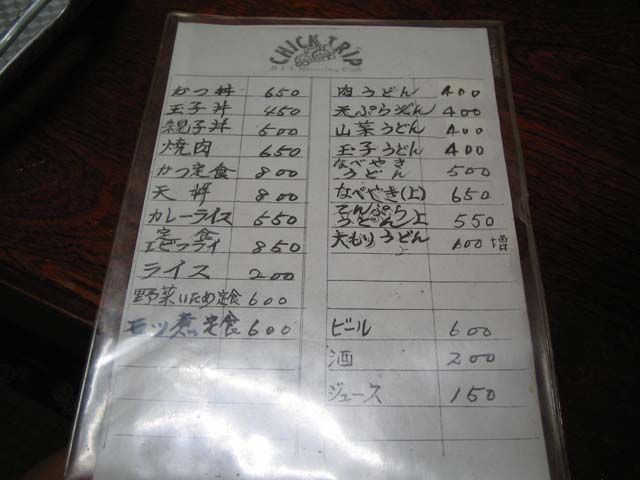 CHICK TRIP
かつ丼 650
玉子丼 450
親子丼 500
焼肉 650
かつ定食 800
天丼 800
カレーライス 550
定食
エビフライ 850
ライス 200
野菜いため定食 600
モツ煮定食 600
肉うどん 400
天ぷらうどん 400
山菜うどん 400
玉子うどん 400
なべやき
うどん 500
なべやき(上) 650
てんぷら
うどん上 550
大もりうどん 100増
ビール 600
酒 200
ジュース 150